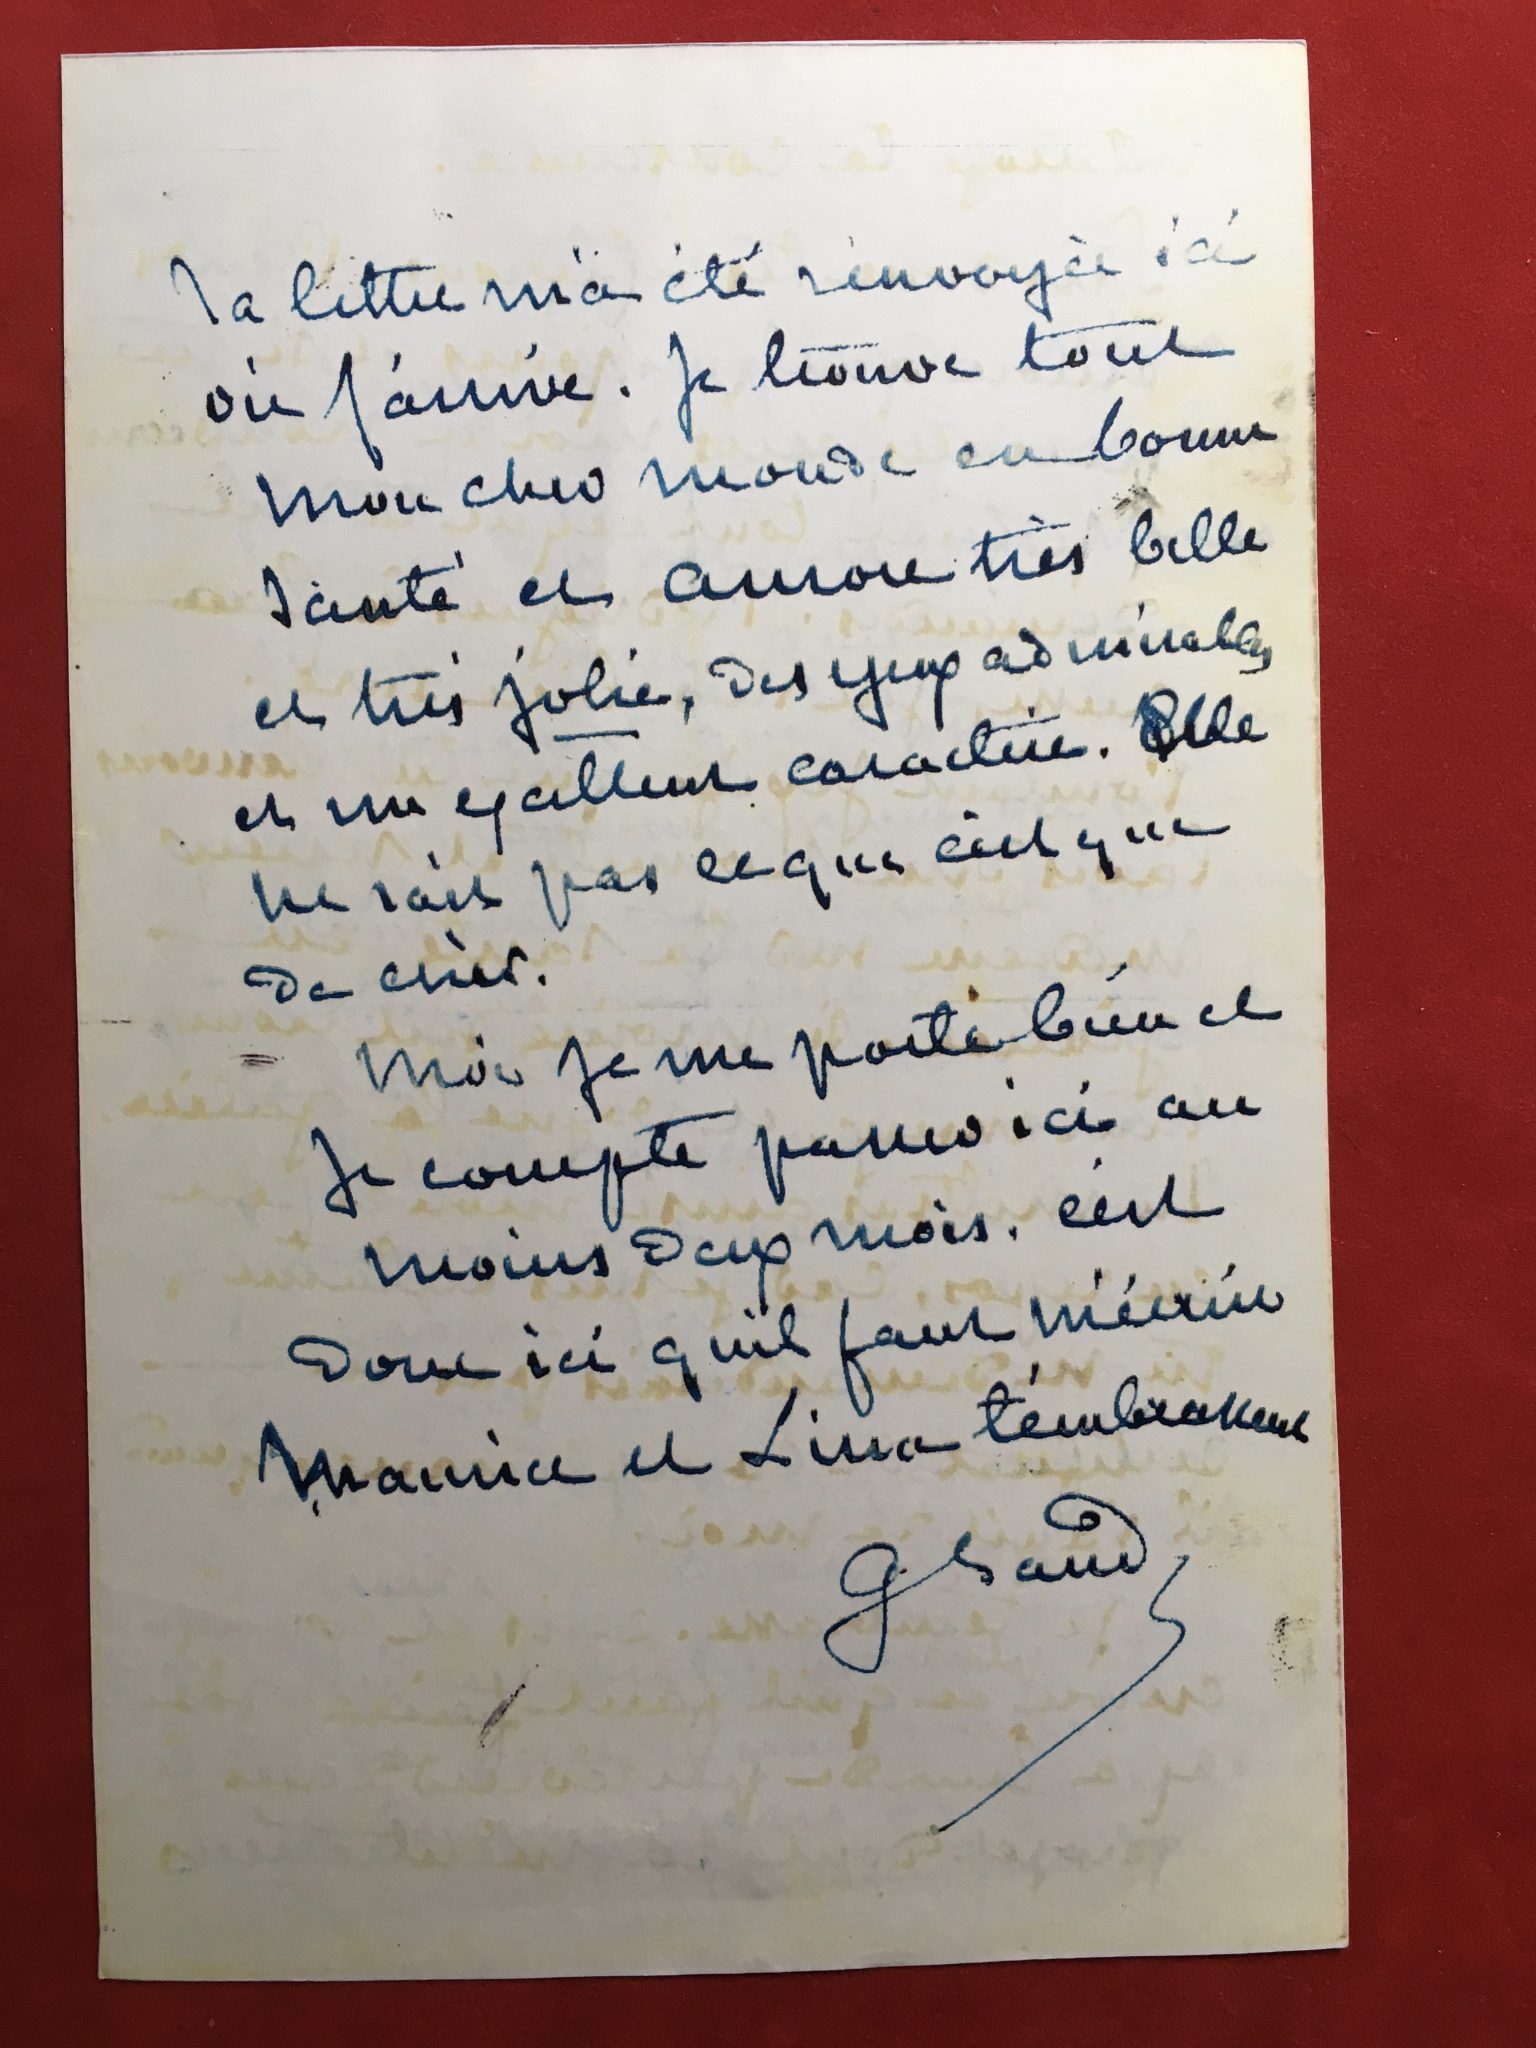 Ta lettre m'a été renvoyée ici
où j'arrive. Je trouve tout
mon cher monde en bonne
santé et Aurore très belle
et très jolie, des yeux admirables
et un exellent caractère. Elle
ne sait pas ce que c'est que
de crier.
Moi je me porte bien et
je compte passer ici au
moins deux mois. C'est
donc ici qu'il faut m'écrire
Maurice et Lina t'embrassent
G Sand